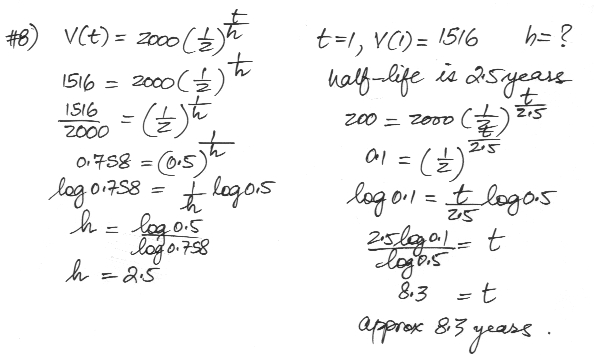 #8) V(t) = 2000(1/2)^(t/h)
1516 = 2000(1/2)^(t/h)
1516/2000 = (1/2)^(t/h)
0.758 = (0.5)^(1/h)
log 0.758 = 1/h log 0.5
h = log 0.5/log 0.758
h = 2.5
t = 1, V(1) = 1516 h = ?
half-life is 2.5 years
200 = 2000(1/2)^(t/2.5)
0.1 = (1/2)^(t/2.5)
log 0.1 = t/2.5 log 0.5
2.5 log 0.1/log 0.5 = t
8.3 = t
approx 8.3 years.